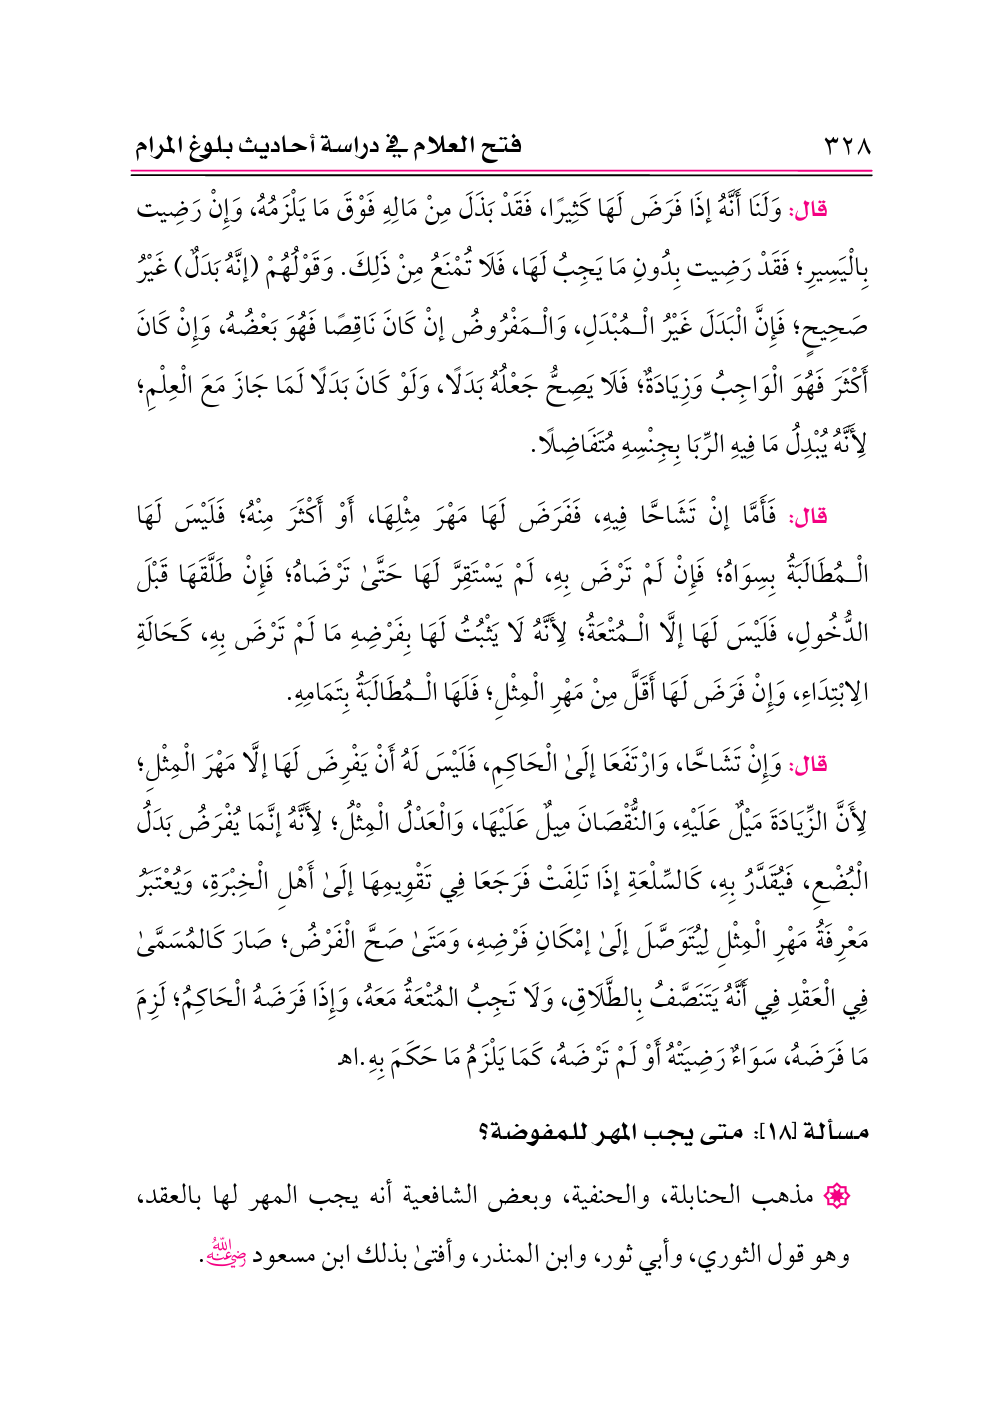 ٣٢٨
فتح العلام في دراسة أحاديث بلوغ المرام
قال: وَلَنَا أَنَّهُ إذَا فَرَضَ لَهَا كَثِيرًا، فَقَدْ بَذَلَ مِنْ مَالِهِ فَوْقَ مَا يَلْزَمُهُ، وَإِنْ رَضِيت
بِالْيَسِيرِ؛ فَقَدْ رَضِيت بِدُونِ مَا يَجِبُ لَهَا، فَلَا تُمْنَعُ مِنْ ذَلِكَ. وَقَوْلُهُمْ (إنَّهُ بَدَلٌ) غَيْرُ
صَحِيحٍ؛ فَإِنَّ الْبَدَلَ غَيْرُ الْـمُبْدَلِ، وَالْـمَفْرُوضُ إنْ كَانَ نَاقِصًا فَهُوَ بَعْضُهُ، وَإِنْ كَانَ
أَكْثَرَ فَهُوَ الْوَاجِبُ وَزِيَادَةٌ؛ فَلَا يَصِحُّ جَعْلُهُ بَدَلًا، وَلَوْ كَانَ بَدَلًا لَمَا جَازَ مَعَ الْعِلْمِ؛
لِأَنَّهُ يُبْدِلُ مَا فِيهِ الرِّبَا بِجِنْسِهِ مُتَفَاضِلًا.
قال: فَأَمَّا إنْ تَشَاحَّا فِيهِ، فَفَرَضَ لَهَا مَهْرَ مِثْلِهَا، أَوْ أَكْثَرَ مِنْهُ؛ فَلَيْسَ لَهَا
الْـمُطَالَبَةُ بِسِوَاهُ؛ فَإِنْ لَمْ تَرْضَ بِهِ، لَمْ يَسْتَقِرَّ لَهَا حَتَّىٰ تَرْضَاهُ؛ فَإِنْ طَلَّقَهَا قَبْلَ
الدُّخُولِ، فَلَيْسَ لَهَا إلَّا الْـمُتْعَةُ؛ لِأَنَّهُ لَا يَثْبُتُ لَهَا بِفَرْضِهِ مَا لَمْ تَرْضَ بِهِ، كَحَالَةِ
الِابْتِدَاءِ، وَإِنْ فَرَضَ لَهَا أَقَلَّ مِنْ مَهْرِ الْمِثْلِ؛ فَلَهَا الْـمُطَالَبَةُ بِتَمَامِهِ.
قال: وَإِنْ تَشَاحَّا، وَارْتَفَعَا إلَىٰ الْحَاكِمِ، فَلَيْسَ لَهُ أَنْ يَفْرِضَ لَهَا إلَّا مَهْرَ الْمِثْلِ؛
لِأَنَّ الزِّيَادَةَ مَيْلٌ عَلَيْهِ، وَالنُّقْصَانَ مِيلٌ عَلَيْهَا، وَالْعَدْلُ الْمِثْلُ؛ لِأَنَّهُ إنَّمَا يُفْرَضُ بَدَلُ
الْبُضْعِ، فَيُقَدَّرُ بِهِ، كَالسِّلْعَةِ إذَا تَلِفَتْ فَرَجَعَا فِي تَقْوِيمِهَا إلَىٰ أَهْلِ الْخِبْرَةِ، وَيُعْتَبَرُ
مَعْرِفَةُ مَهْرِ الْمِثْلِ لِيُتَوَصَّلَ إلَىٰ إمْكَانِ فَرْضِهِ، وَمَتَىٰ صَحَّ الْفَرْضُ؛ صَارَ كَالمُسَمَّىٰ
فِي الْعَقْدِ فِي أَنَّهُ يَتَنَصَّفُ بِالطَّلَاقِ، وَلَا تَجِبُ المُتْعَةُ مَعَهُ، وَإِذَا فَرَضَهُ الْحَاكِمُ؛ لَزِمَ
مَا فَرَضَهُ، سَوَاءٌ رَضِيَتْهُ أَوْ لَمْ تَرْضَهُ، كَمَا يَلْزَمُ مَا حَكَمَ بِهِ.اهـ
مسألة [١٨]: متى يجب المهر للمفوضة؟
مذهب الحنابلة، والحنفية، وبعض الشافعية أنه يجب المهر لها بالعقد،
وهو قول الثوري، وأبي ثور، وابن المنذر، وأفتىٰ بذلك ابن مسعود رضي الله عنه.